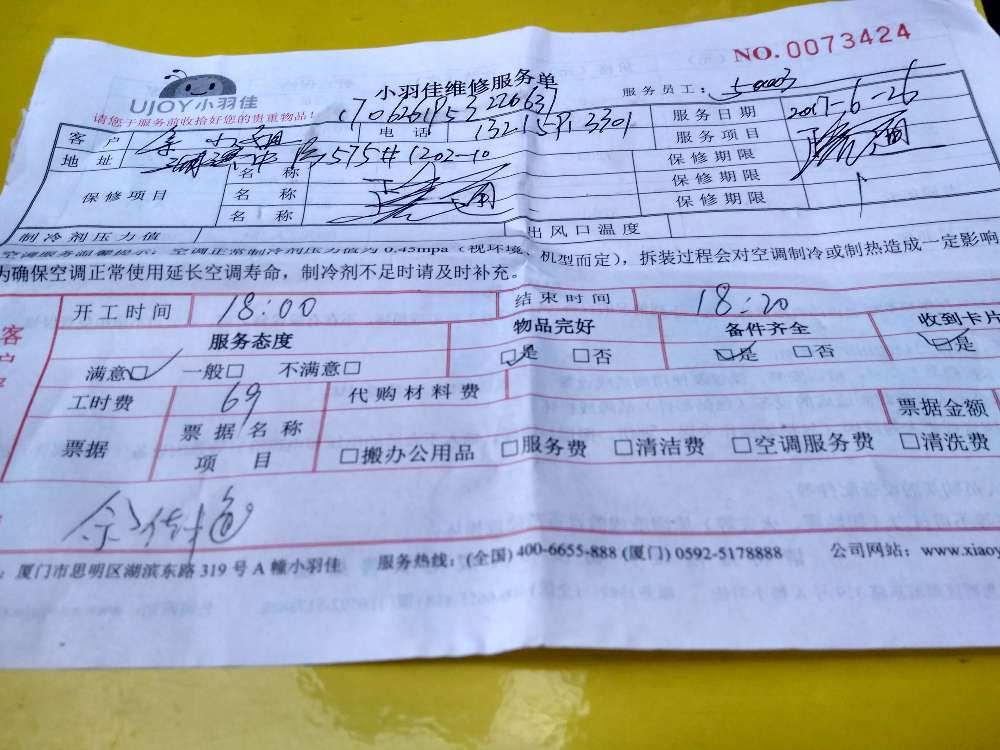 NO.0073424
UJOY小羽佳 小羽佳维修服务单 服务员工：50003
请您于服务前收拾好您的贵重物品！
客户 电话 服务日期 2017-6-26
地址 575# 1202-10 服务项目
保修项目 名称 保修期限
名称 保修期限
名称 保修期限
制冷剂压力值 出风口温度
空调服务温馨提示：空调正常制冷剂压力值为0.45mpa（视环境、机型而定），拆装过程会对空调制冷或制热造成一定影响
为确保空调正常使用延长空调寿命，制冷剂不足时请及时补充。
客户 开工时间 18:00 结束时间 18:20
服务态度 物品完好 备件齐全 收到卡片
满意□ 一般□ 不满意□ □是 □否 □是 □否 □是
工时费 69 代购材料费
票据 票据名称 票据金额
项目 □搬办公用品 □服务费 □清洁费 □空调服务费 □清洗费
：厦门市思明区湖滨东路319号A幢小羽佳 服务热线：(全国)400-6655-888(厦门)0592-5178888 公司网站：www.xiaoy